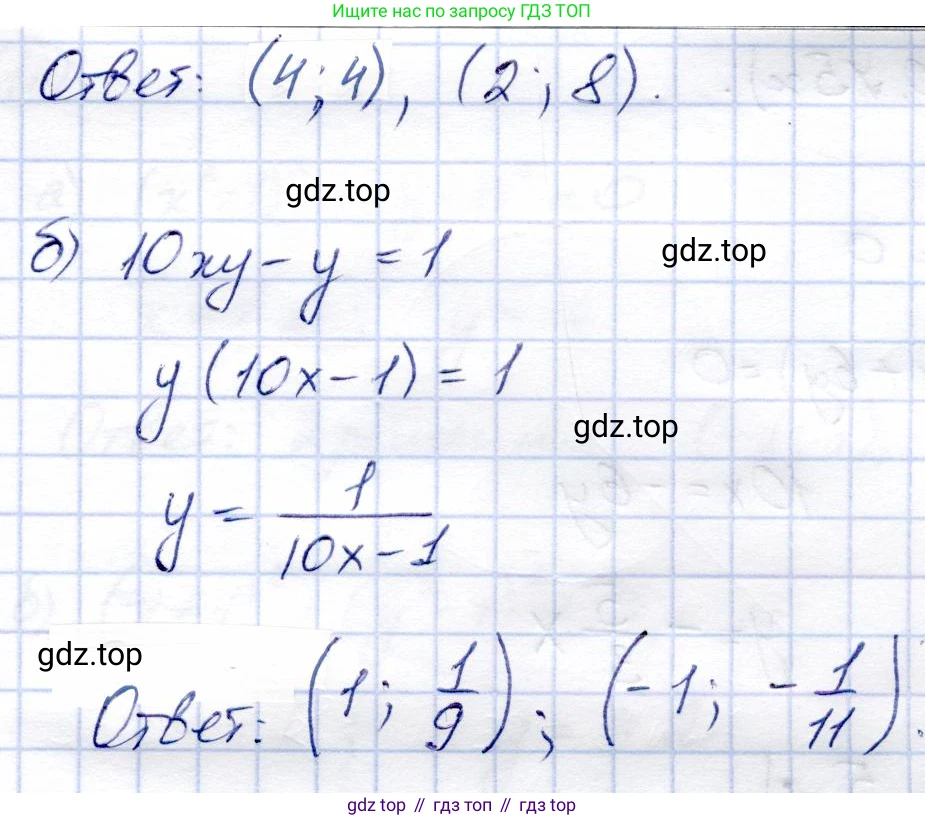 Ищите нас по запросу ГДЗ ТОП
Ответ: (4; 4), (2; 8).
gdz.top
б) 10xy - y = 1
gdz.top
y(10x - 1) = 1
gdz.top
y = 1/(10x - 1)
gdz.top
Ответ: (1; 1/9); (-1; -1/11).
gdz top // гдз топ // gdz top